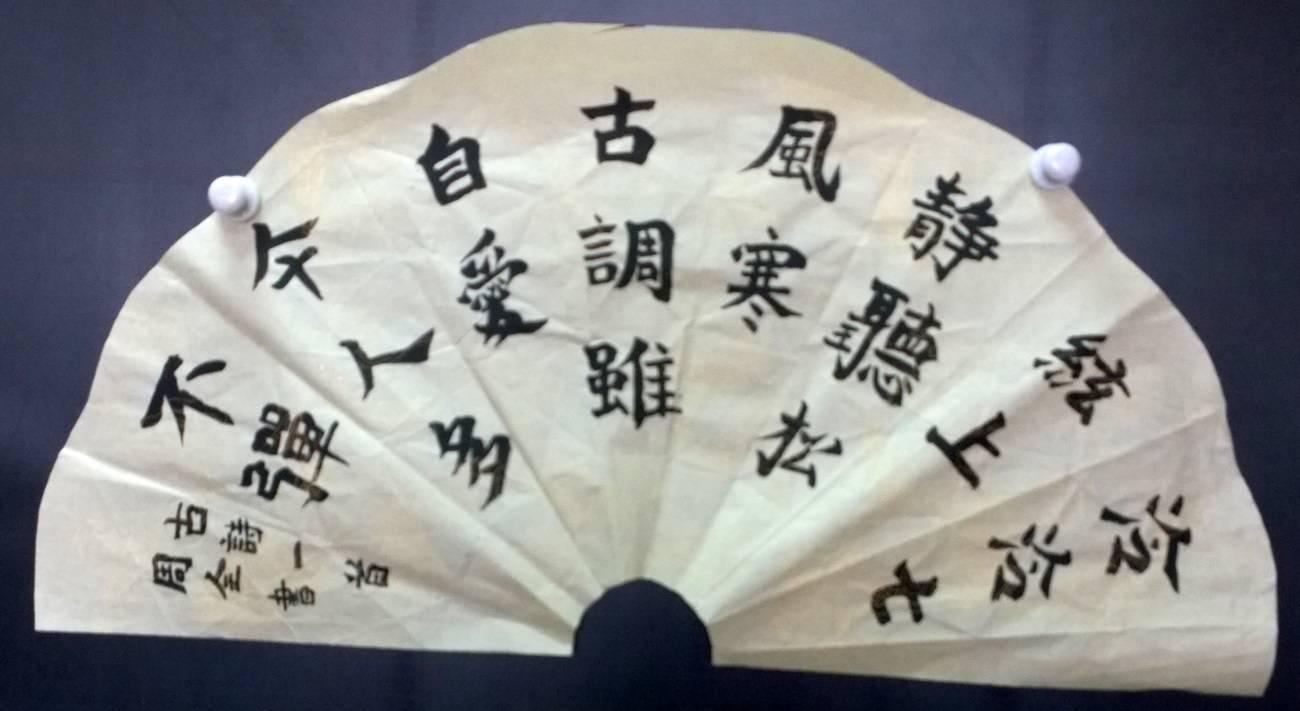 泠泠七
絃上
静聽松
風寒
古調雖
自愛
今人多
不彈
古詩一首
周全書